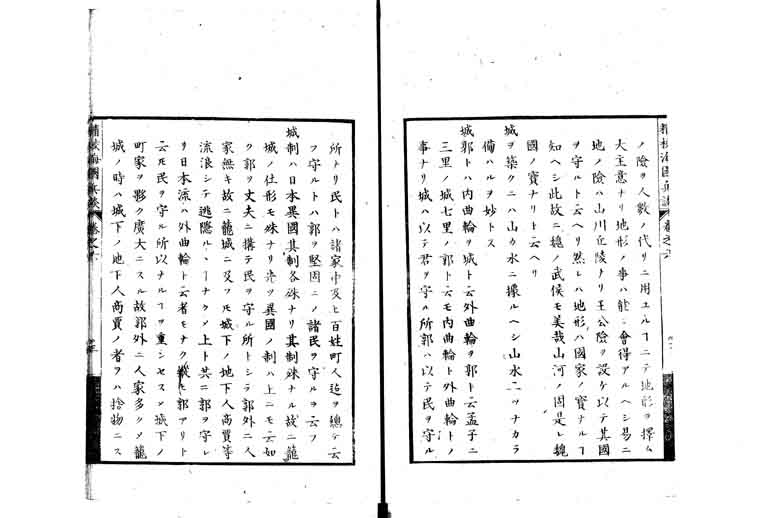 ノ險ヲ人數ノ代リニ用エルヿニテ地形ヲ擇ム
大主意ナリ地形ノ事ハ能會得アルヘシ易ニ
地ノ險ハ山川丘陵ナリ王公險ヲ設ケ以テ其國
ヲ守ルト云ヘリ然レハ地形ハ國家ノ寳ナルヿ
知ヘシ此故ニ魏ノ武侯モ美哉山河ノ固是レ魏
國ノ寳ナリト云ヘリ
城ヲ築クニハ山カ水ニ據ルヘシ山水二ツナカラ
備ハルヲ妙トス
城郭トハ内曲輪ヲ城ト云外曲輪ヲ郭ト云孟子ニ
三里ノ城七里ノ郭ト云モ内曲輪ト外曲輪トノ
事ナリ城ハ以テ君ヲ守ル所郭ハ以テ民ヲ守ル
精校海國兵談 卷之六
所ナリ民トハ諸家中及ヒ百姓町人迄ヲ總テ云
フ守ルトハ郭ヲ堅固ニノ諸民ヲ守ルヲ云フ
城制ハ日本異國其制各殊ナリ其制殊ナル故ニ籠
城ノ仕形モ殊ナリ先ツ異國ノ制ハ上ニモ云如
ク郭ヲ丈夫ニ搆テ民ヲ守ル所トシテ郭外ニ人
家無キ故ニ籠城ニ及フヿモ城下ノ地下人商賈等
流浪シテ逃隱ルヽヿナクノ上ト共ニ郭ヲ守レ
リ日本流ハ外曲輪ト云者モナク郭アリト
云モ民ヲ守ル所以ナルヿヲ重シセスノ城下ノ
町家ヲ夥ク廣大ニスル故郭外ニ人家多クノ籠
城ノ時ハ城下ノ地下人商賈ノ者ヲハ捨物ニス
精校海國兵談 卷之六